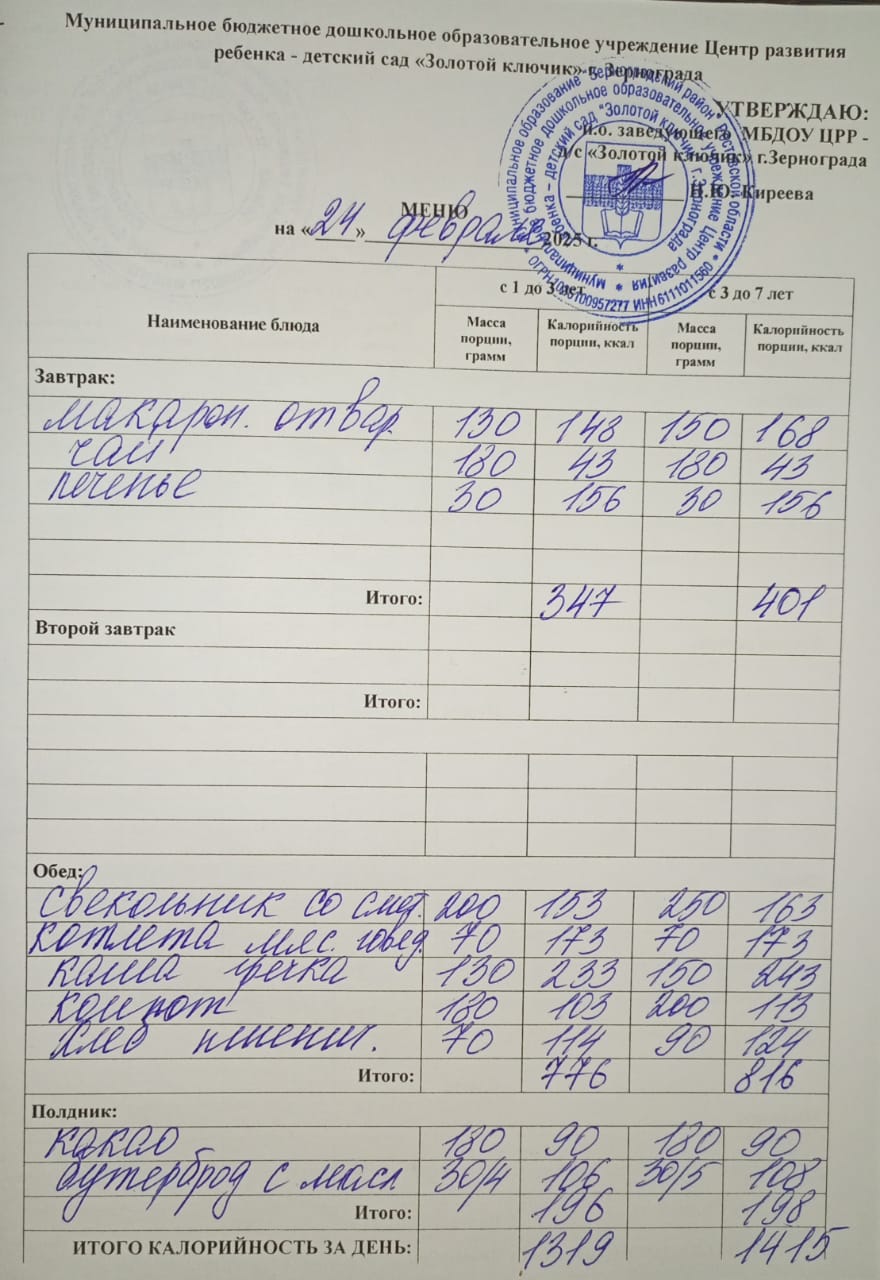 Муниципальное бюджетное дошкольное образовательное учреждение Центр развития
ребенка - детский сад «Золотой ключик» г. Зернограда
УТВЕРЖДАЮ:
и.о. заведующего МБДОУ ЦРР -
д/с «Золотой ключик» г.Зернограда
Н.Ю. Киреева
МЕНЮ
на «24» февраля 2025 г.
с 1 до 3 лет с 3 до 7 лет
Наименование блюда Масса порции, грамм Калорийность порции, ккал Масса порции, грамм Калорийность порции, ккал
Завтрак:
макарон. отвар. 130 148 150 168
чай 180 43 180 43
печенье 30 156 30 156
Итого: 347 401
Второй завтрак
Итого:
Обед:
свекольник со смет. 200 153 250 163
котлета мяс. говед. 70 173 70 173
каша гречка 130 233 150 243
компот 180 103 200 113
хлеб пшенич. 70 114 90 124
Итого: 776 816
Полдник:
какао 180 90 180 90
бутерброд с масл 30/4 106 30/5 108
Итого: 196 198
ИТОГО КАЛОРИЙНОСТЬ ЗА ДЕНЬ: 1319 1415